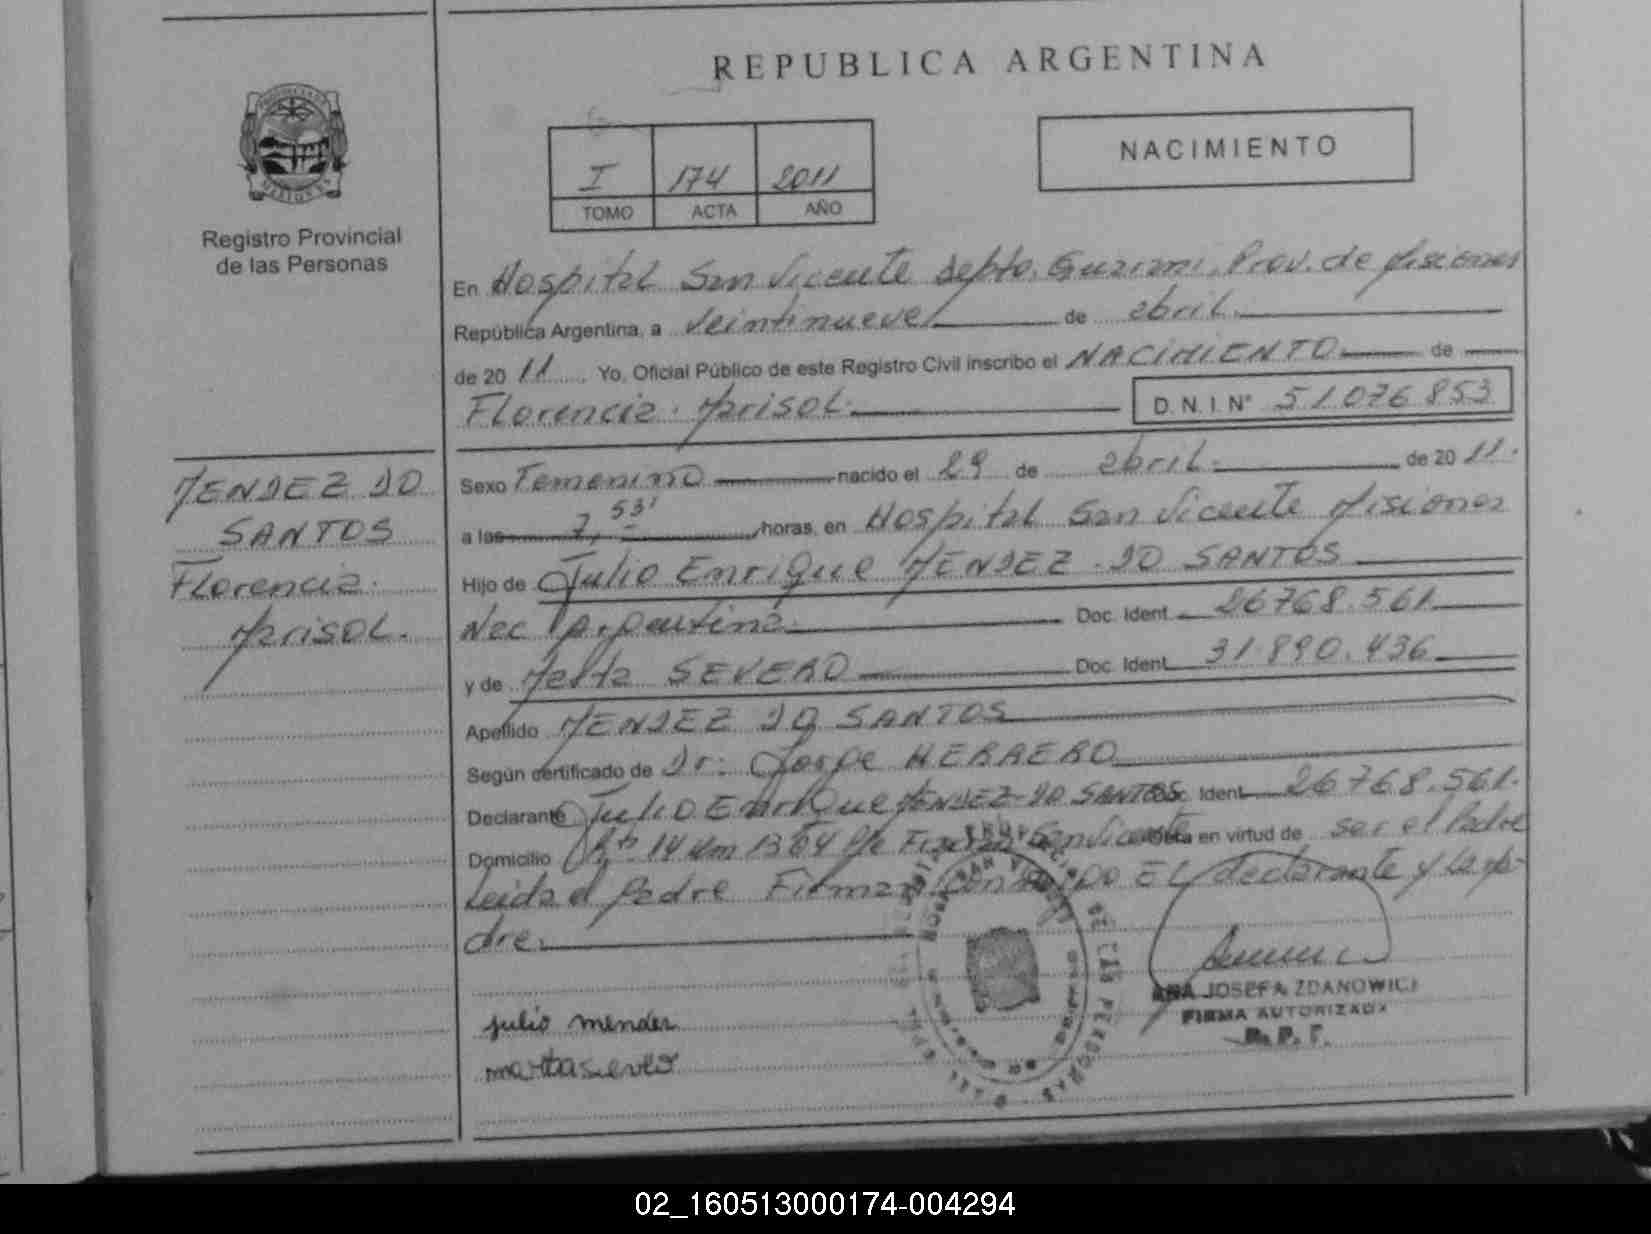 REPUBLICA ARGENTINA
NACIMIENTO
I 174 2011
TOMO ACTA AÑO
Registro Provincial
de las Personas
En Hospital San Vicente Depto. Guarani, Prov. de Misiones
República Argentina, a Veintinueve de abril.
de 20 11 Yo, Oficial Público de este Registro Civil inscribo el NACIMIENTO de
Florencia Marisol. D.N.I. N° 51.076.853
MENDEZ DO
SANTOS
Florencia
Marisol.
Sexo Femenino nacido el 29 de abril. de 20 11.
a las 7,53' horas, en Hospital San Vicente Misiones
Hijo de Julio Enrique MENDEZ DO SANTOS
Nac Argentina Doc. Ident. 26768.561
y de Marta SEVERO Doc. Ident. 31.890.436
Apellido MENDEZ DO SANTOS
Según certificado de Dr: Jorge HERRERO
Declarante Julio Enrique MENDEZ DO SANTOS Doc. Ident. 26768.561.
Domicilio Rta 14 Km San Vicente en virtud de ser el Padre
Leida el Padre Firman EL declarante y la ma-
dre.
julio mendez
marta severo
ANA JOSEFA ZDANOWICZ
FIRMA AUTORIZADA
R. P. P.
02_160513000174-004294